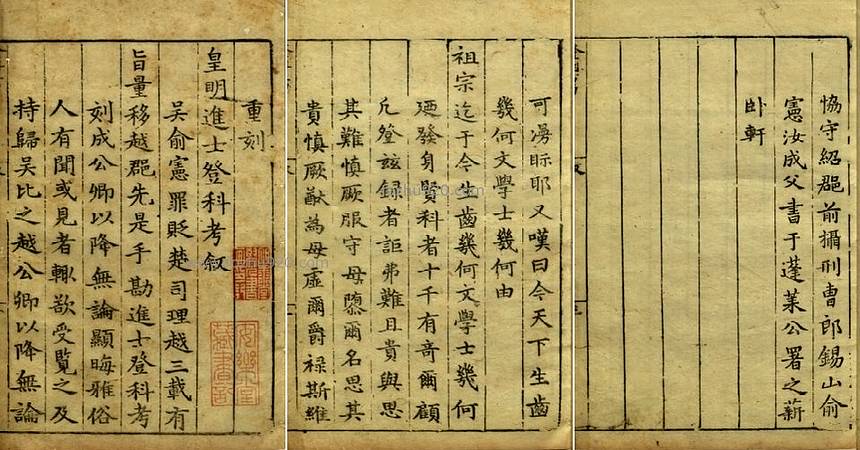 重刻
皇明進士登科考叙
吳俞憲罪貶楚司理越三載有
旨量移越郡先是手勘進士登科考
刻成公卿以降無論顯晦雅俗
人有聞或見者輒欲受覽之及
持歸吳比之越公卿以降無論
可漫眎耶又嘆曰今天下生齒
幾何文學士幾何由
祖宗迄于今生齒幾何文學士幾何
廼發身賢科者十千有奇爾顧
凡登玆録者詎弗難且貴與思
其難慎厥服守毋隳爾名思其
貴慎厥猷為毋虛爾爵祿斯維
協守紹郡前攝刑曹郎錫山俞
憲汝成父書于蓬萊公署之薪
卧軒